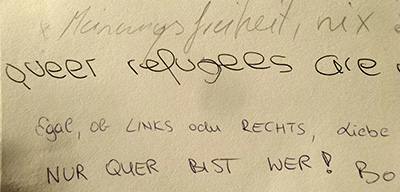 Meinungsfreiheit, nix
queer refugees are
Egal, ob LINKS oder RECHTS, Liebe
NUR QUER BIST WER! Bo